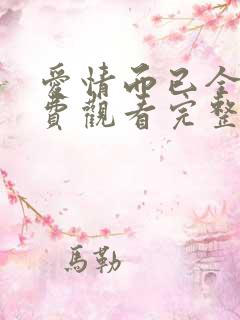 愛情而已全
費觀看完整
馬勒